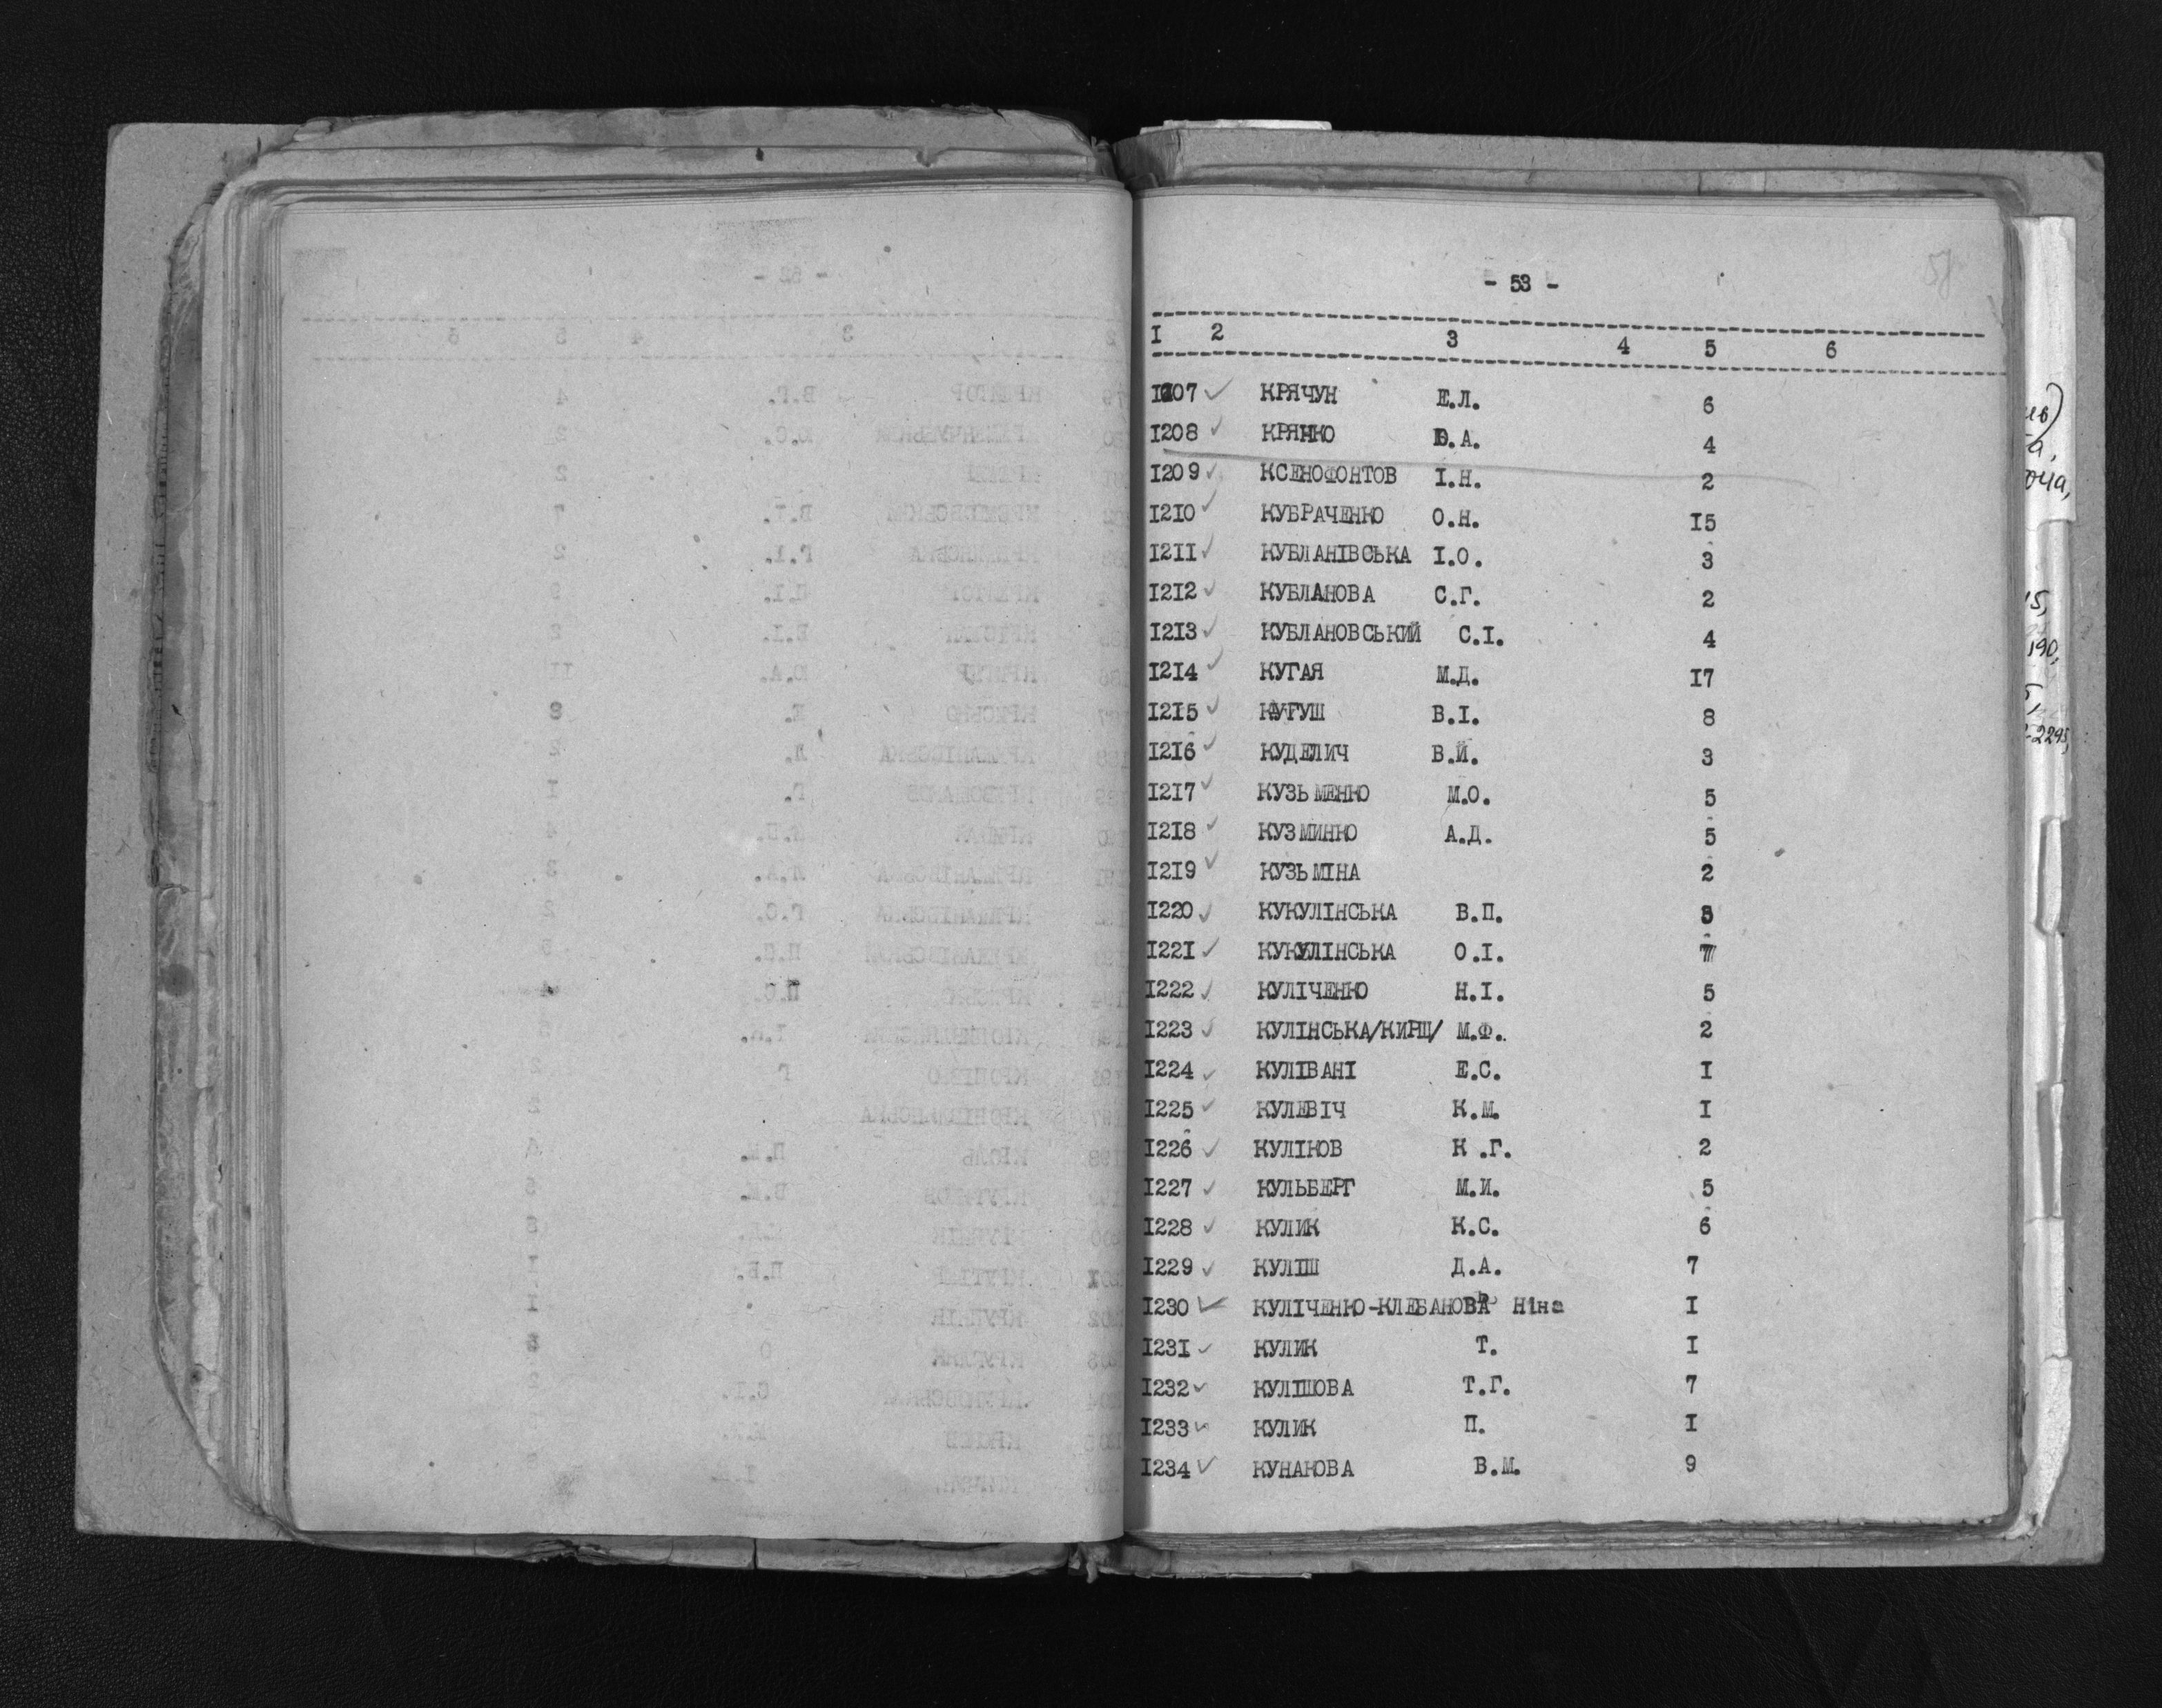 - 53 -
I 2 3 4 5 6
1207 КРЯЧУН Е.Л. 6
I208 КРЯЧКО Ю.А. 4
I209 КСЕНОФОНТОВ І.Н. 2
I2I0 КУБРАЧЕНКО О.Н. I5
I2II КУБЛАНІВСЬКА І.О. 3
I2I2 КУБЛАНОВА С.Г. 2
I2I3 КУБЛАНОВСЬКИЙ С.І. 4
I2I4 КУГАЯ М.Д. I7
I2I5 КУГУШ В.І. 8
I2I6 КУДЕЛИЧ В.Й. 3
I2I7 КУЗЬМЕНКО М.О. 5
I2I8 КУЗМИНКО А.Д. 5
I2I9 КУЗЬМІНА 2
I220 КУКУЛІНСЬКА В.П.
I22I КУКУЛІНСЬКА О.І. 7
I222 КУЛІЧЕНКО Н.І. 5
I223 КУЛІНСЬКА/КИРЩ/ М.Ф. 2
I224 КУЛІВАНІ Е.С. I
I225 КУЛЕВІЧ К.М. I
I226 КУЛІКОВ К .Г. 2
I227 КУЛЬБЕРГ М.И. 5
I228 КУЛИК К.С. 6
I229 КУЛІШ Д.А. 7
I230 КУЛІЧЕНКО-КЛЕБАНОВА Ніна I
I23I КУЛИК Т. I
I232 КУЛІШОВА Т.Г. 7
I233 КУЛИК П. I
I234 КУНАКОВА В.М. 9
15,
190,
-2295,